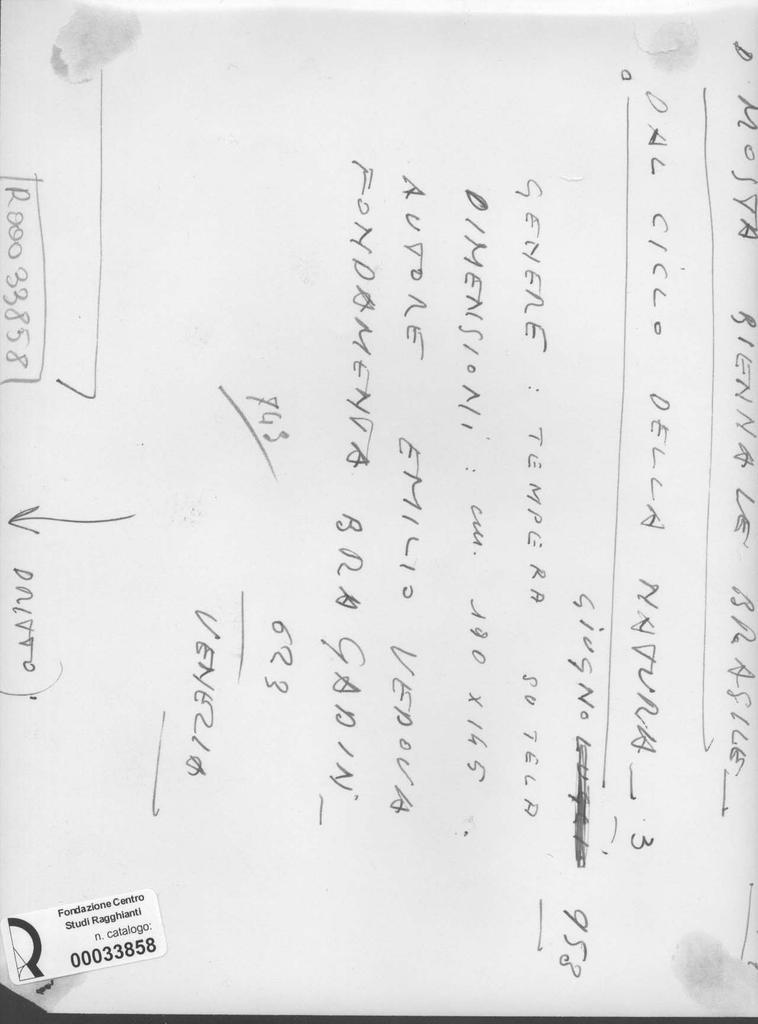 MOSTA BIENNALE BRASILE_
DAL CICLO DELLA NATURA_ 3
GIUGNO 953
GENERE : TEMPERA SU TELA
DIMENSIONI : cm. 190 x 145.
AUTORE EMILIO VEDOVA
FONDAMENTA BRAGADIN_
623
743
VENEZIA
DRITTO
R00033858
Fondazione Centro
Studi Ragghianti
n. catalogo:
00033858